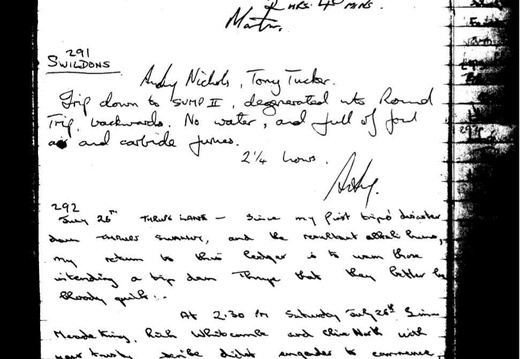 2 HRS. 45 MINS.
Martin.
291
SWILDONS
Andy Nichols, Tony Tucker.
Trip down to SUMP II, degenerated into Round
Trip, backwards. No water, and full of foul
air and carbide fumes.
2 1/4 hours.
Andy.
292
July 26th THRUPE LANE - Since my first trip's disaster
down THRUPE SWALLET, and the resultant alkali burns,
my return to this ledger is to warn those
intending a trip down Thrupe that they better be
bloody quick..
At 2.30 PM Saturday July 26th Simon
Meade-King, Rich Whitcombe and Clive North with
your trusty scribe did